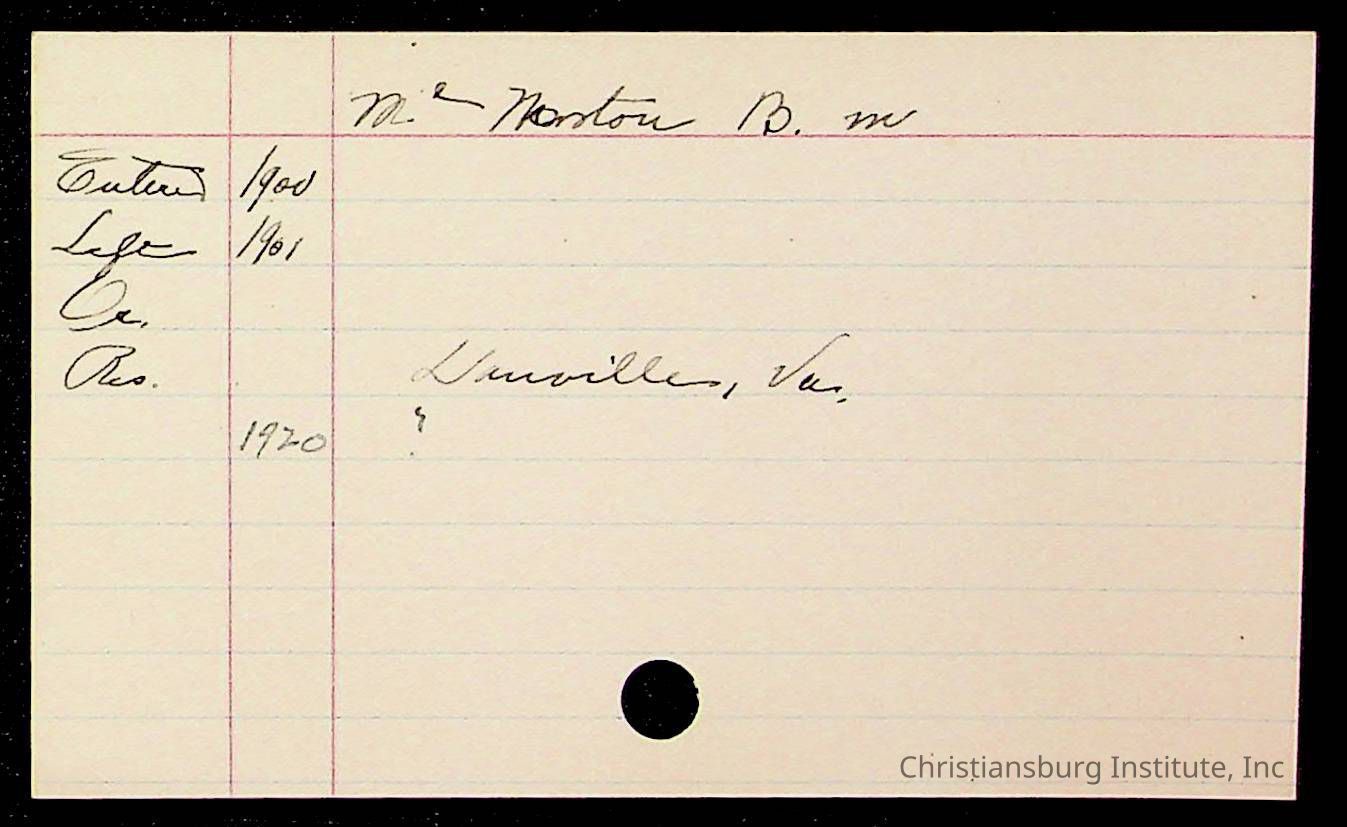 Mc B. M
Entered 1900
Left 1901
Oc.
Res. Danville, Va.
1920 "
Christiansburg Institute, Inc